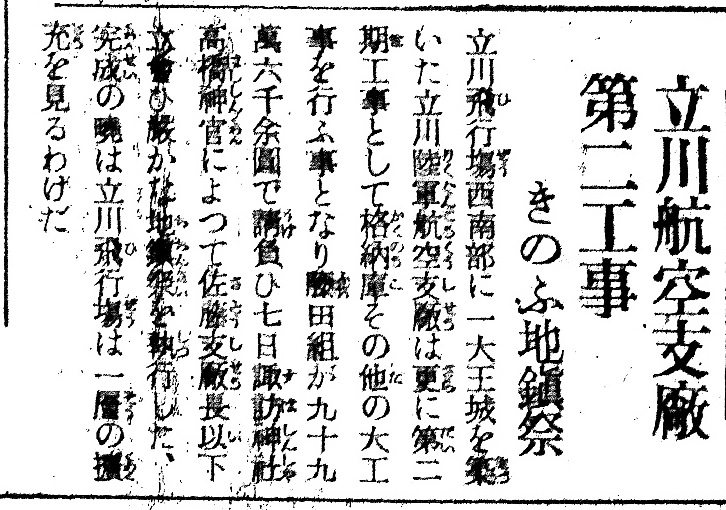 立川航空支廠
第二工事
きのふ地鎭祭
立川飛行場西南部に一大王城を築
いた立川陸軍航空支廠は更に第二
期工事として格納庫その他の大工
事を行ふ事となり勝田組が九十九
萬六千余圓で請負ひ七日諏訪神社
高橋神官によつて佐藤支廠長以下
立會ひ嚴かな地鎭祭を執行した、
完成の曉は立川飛行場は一層の擴
充を見るわけだ